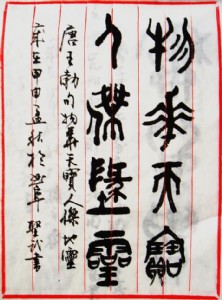 物華天寶
人傑墬靈
唐王勃句物華天寶人傑地靈
歲在甲申孟秋於 書